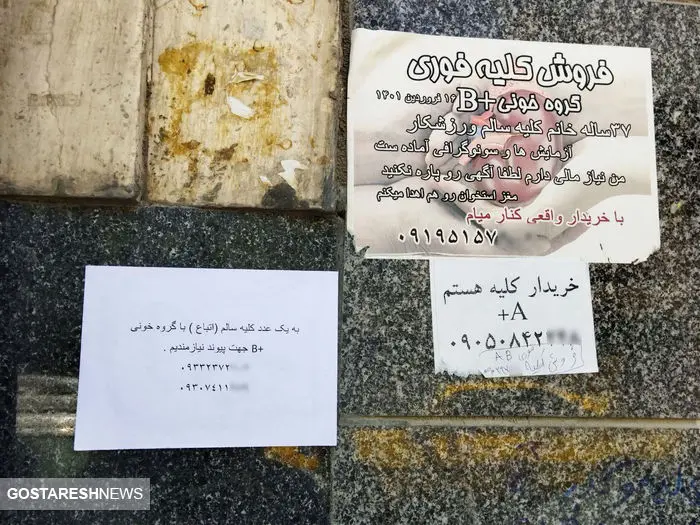 فروش کلیه فوری
گروه خونی +B ۱۶ فروردین ۱۴۰۱
۳۷ساله خانم کلیه سالم ورزشکار
آزمایش ها و سونوگرافی آماده ست
من نیاز مالی دارم لطفا آگهی رو پاره نکنید
مغز استخوان رو هم اهدا میکنم
با خریدار واقعی کنار میام
۰۹۱۹۵۱۵۷
خریدار کلیه هستم
A+
۰۹۰۵۰۸۴۲
A.B
فروش کلیه
به یک عدد کلیه سالم (اتباع ) با گروه خونی
B+ جهت پیوند نیازمندیم .
۰۹۳۳۲۳۷۲
۰۹۳۰۷٤۱۱
GOSTARESHNEWS